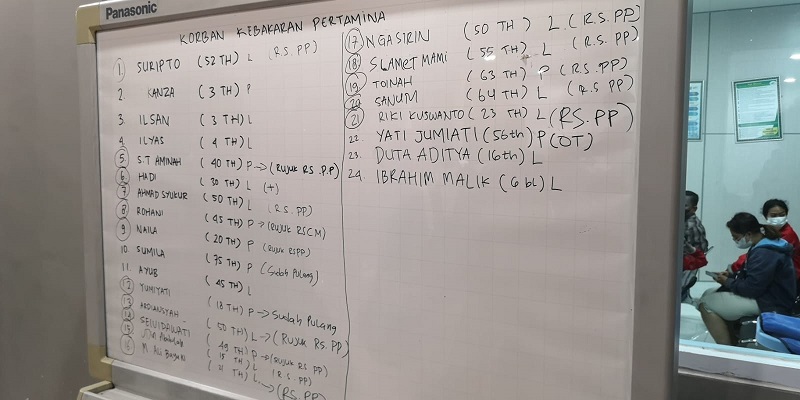 Panasonic
KORBAN KEBAKARAN PERTAMINA
1 SURIPTO (52 TH) L (R.S. PP)
2 KANZA (3 TH) P
3 ILSAN (3 TH) L
4 ILYAS (4 TH) L
5 S.T AMINAH (40 TH) P → (RUJUK RS.P.P)
6 HADI (30 TH) L (+)
7 AHMAD SYUKUR (50 TH) L (R.S. PP)
8 ROHANI (45 TH) P → (RUJUK RSCM)
9 NAILA (20 TH) P (RUJUK RSPP)
10. SUMILA (75 TH) P (Sudah Pulang)
11. AYUB (45 TH) L
12 YUMIYATI (18 TH) P → Sudah Pulang
13 ARDIANSYAH (50 TH) L → (RUJUK RS. PP)
14 (49 TH) P → (RUJUK RS. PP)
15 (15 TH) L (R.S. PP)
16 M. Ali L → (RS. PP)
17. NGASIRIN (50 TH) L. (R.S. PP)
18 SLAMET MAMI (55 TH) L (R.S. PP)
19 TOINAH (63 TH) P (R.S. PP)
20 SANUM (64 TH) L (R.S PP)
21 RIKI KUSWANTO (23 TH) L (RS. PP)
22. YATI JUMIATI (56th) P (OT)
23. DUTA ADITYA (16th) L
24. IBRAHIM MALIK (6 bl) L